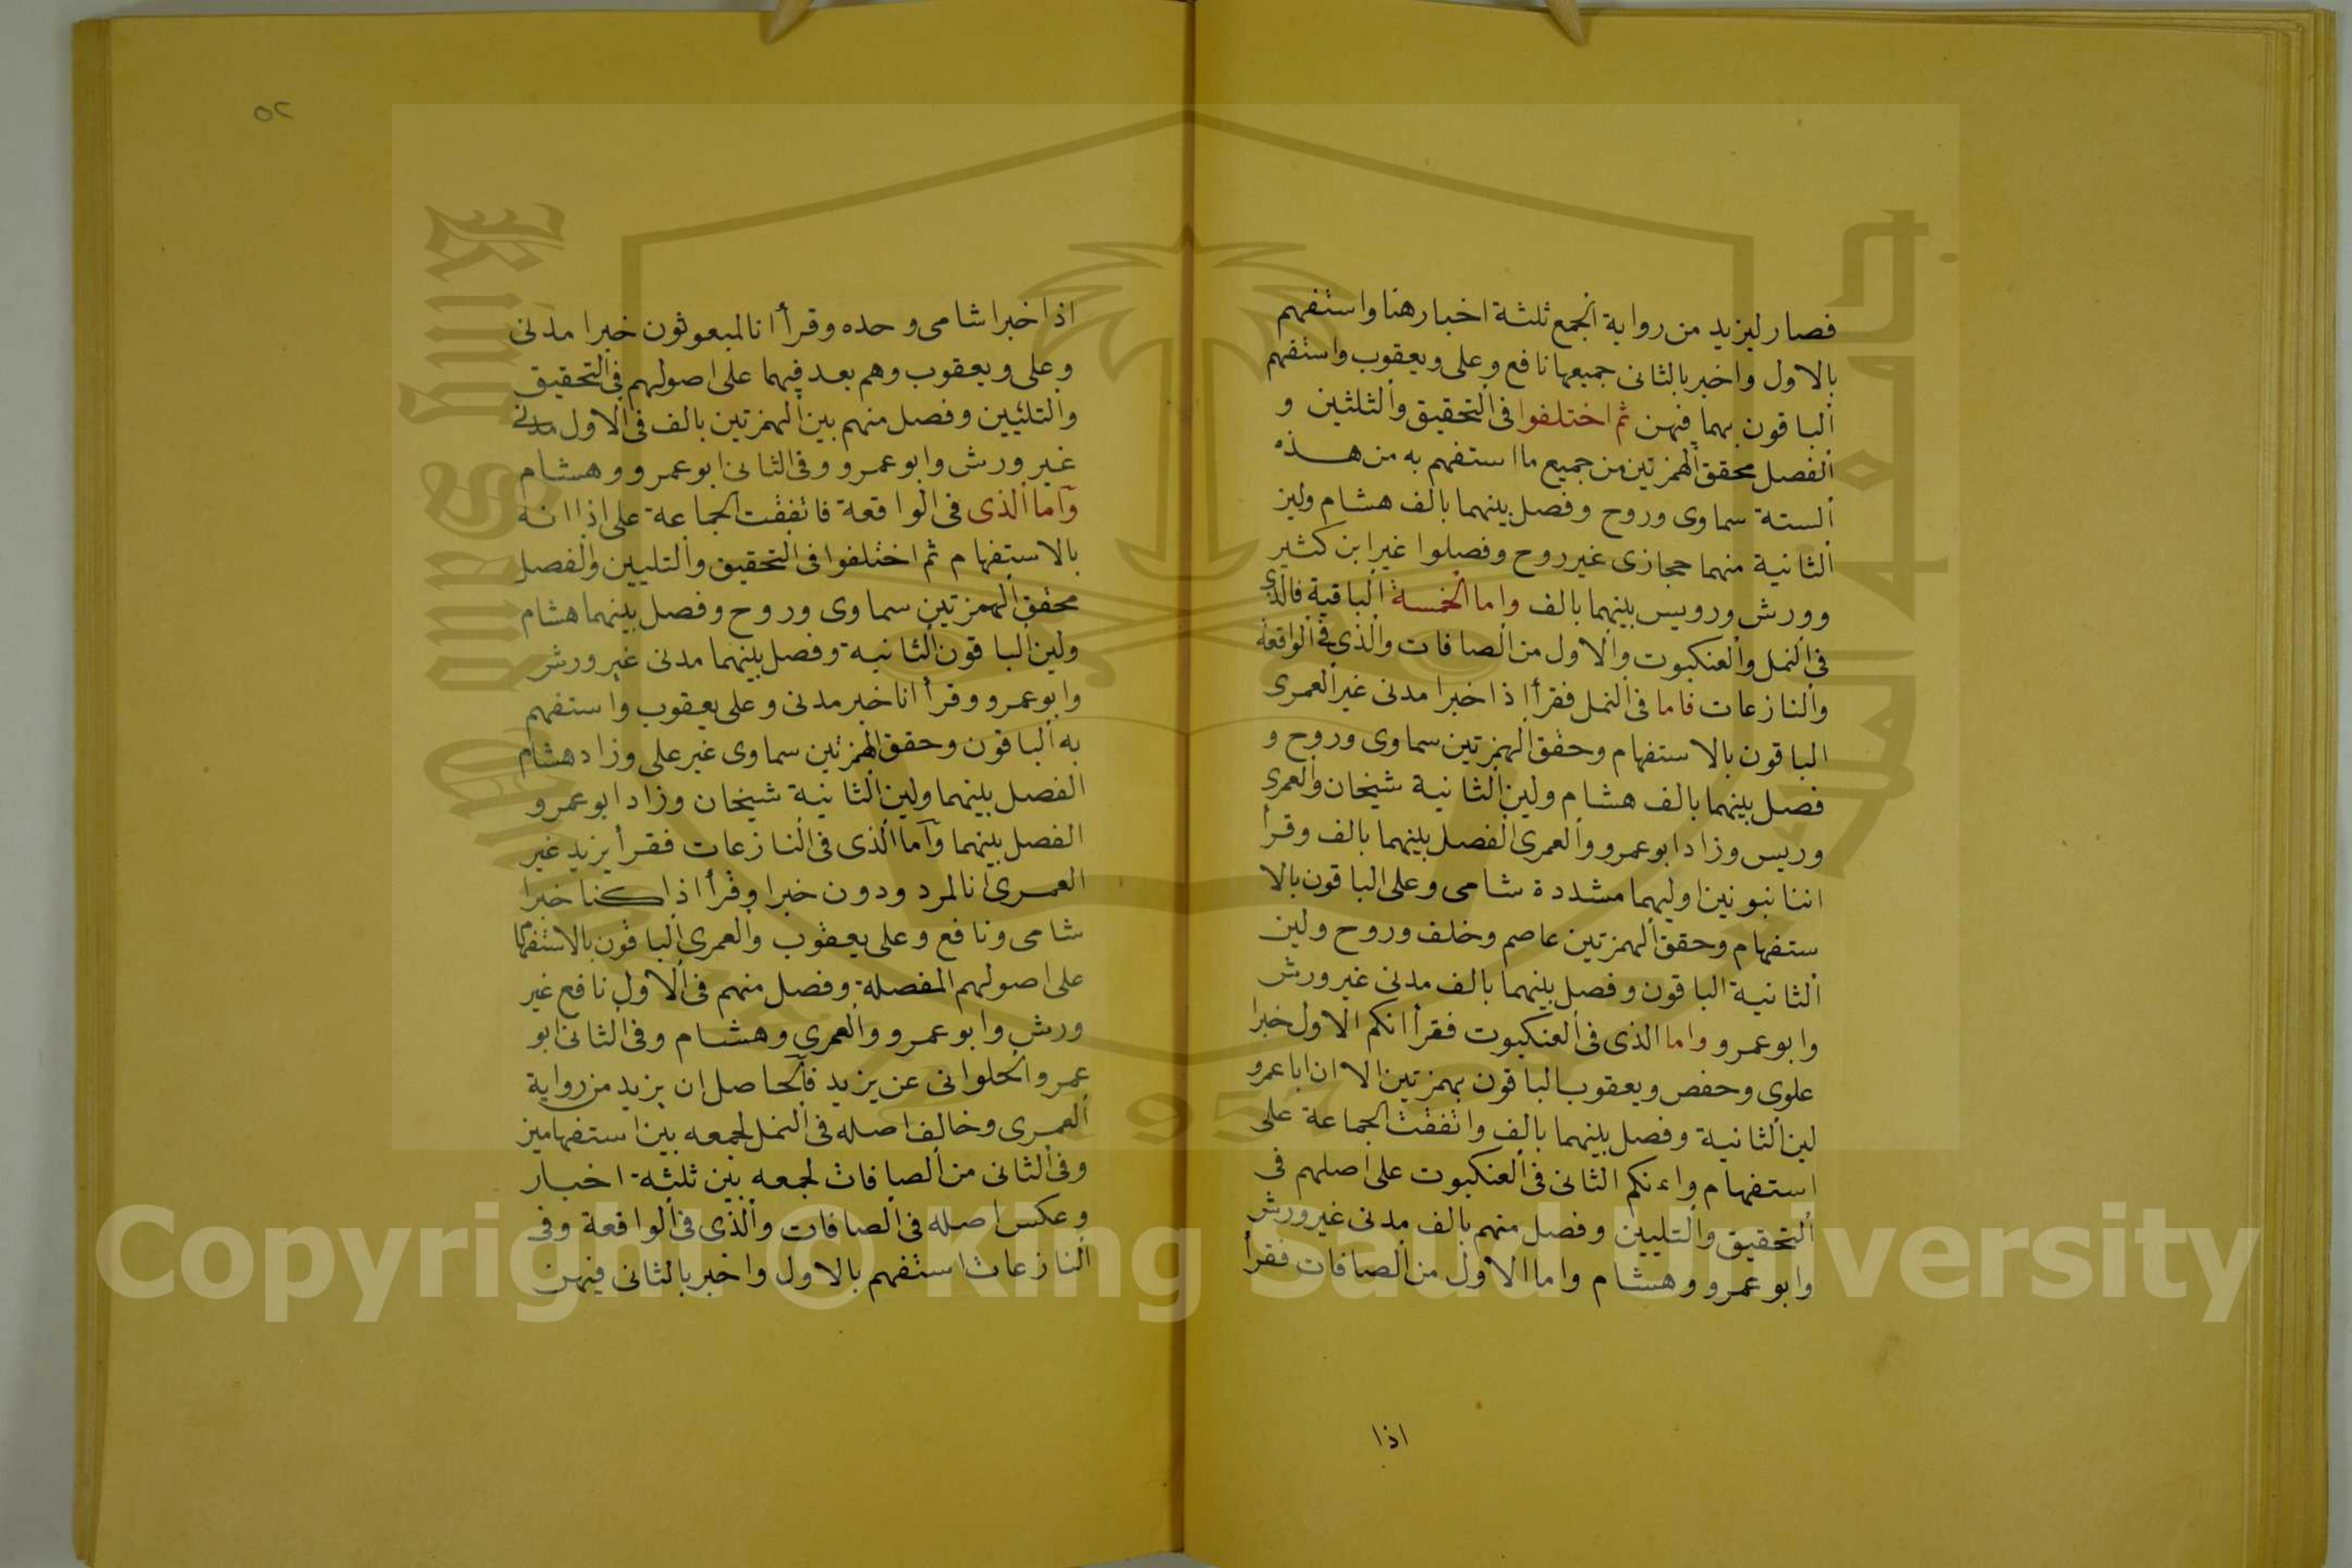 فصار ليزيد من رواية الجمع ثلثة اخبار هنا واستفهم
بالاول واخبر بالثانى جميعها نافع وعلى ويعقوب واستفهم
الباقون بهما فيهن ثم اختلفوا فى التحقيق والثلثين و
الفصل محقق الهمزتين من جميع ما استفهم به من هذه
الستة سماوى وروح وفصل بينهما بالف هشام ولين
الثانية منهما حجازى غير روح وفصلوا غير ابن كثير
وورش ورويس بينهما بالف واما الخمسة الباقية فالذى
فى النمل والعنكبوت والاول من الصافات والذى فى الواقعة
والنازعات فاما فى النمل فقرأ اذا خبرا مدنى غير العمرى
الباقون بالاستفهام وحقق الهمزتين سماوى وروح و
فصل بينهما بالف هشام ولين الثانية شيخان والعمرى
وريس وزاد ابو عمرو والعمرى الفصل بينهما بالف وقرأ
اننا نبونين اوليهما مشددة شامى وعلى الباقون بالا
ستفهام وحقق الهمزتين عاصم وخلف وروح ولين
الثانية الباقون وفصل بينهما بالف مدنى غير ورش
وابو عمرو واما الذى فى العنكبوت فقرأ انكم الاول خبرا
علوى وحفص ويعقوب الباقون بهمزتين الا ان ابا عمرو
لين الثانية وفصل بينهما بالف واتفقت الجماعة على
استفهام واءنكم الثانى فى العنكبوت على اصلهم فى
التحقيق والتليين وفصل منهم بالف مدنى غير ورش
وابو عمرو وهشام واما الاول من الصافات فقرأ
اذا
٥٢
اذا خبرا شامى وحده وقرأ انا لمبعوثون خبرا مدنى
وعلى ويعقوب وهم بعد فيهما على اصولهم فى التحقيق
والتلئيين وفصل منهم بين الهمزتين بالف فى الاول مدنى
غير ورش وابو عمرو وفى الثانى ابو عمرو وهشام
وأما الذى فى الواقعة فاتفقت الجماعة على اذا انه
بالاستفهام ثم اختلفوا فى التحقيق والتليين والفصل
محقق الهمزتين سماوى وروح وفصل بينهما هشام
ولين الباقون الثانية وفصل بينهما مدنى غير ورش
وابو عمرو وقرأ انا خبر مدنى وعلى يعقوب واستفهم
به الباقون وحقق الهمزتين سماوى غير على وزاد هشام
الفصل بينهما ولين الثانية شيخان وزاد ابو عمرو
الفصل بينهما وأما الذى فى النازعات فقرأ يزيد غير
العمرى انا لمردودون خبرا وقرأ اذا كنا خبرا
شامى ونافع وعلى يعقوب والعمرى الباقون بالاستفهام
على اصولهم المفصلة وفصل منهم فى الاول نافع غير
ورش وابو عمرو والعمرى وهشام وفى الثانى ابو
عمرو الحلوانى عن يزيد فالحاصل ان يزيد من رواية
العمرى وخالف اصله فى النمل لجمعه بين استفهامين
وفى الثانى من الصافات لجمعه بين ثلثة اخبار
وعكس اصله فى الصافات والذى فى الواقعة وفى
النازعات استفهم بالاول واخبر بالثانى فيهن
Copyright © King Saud University